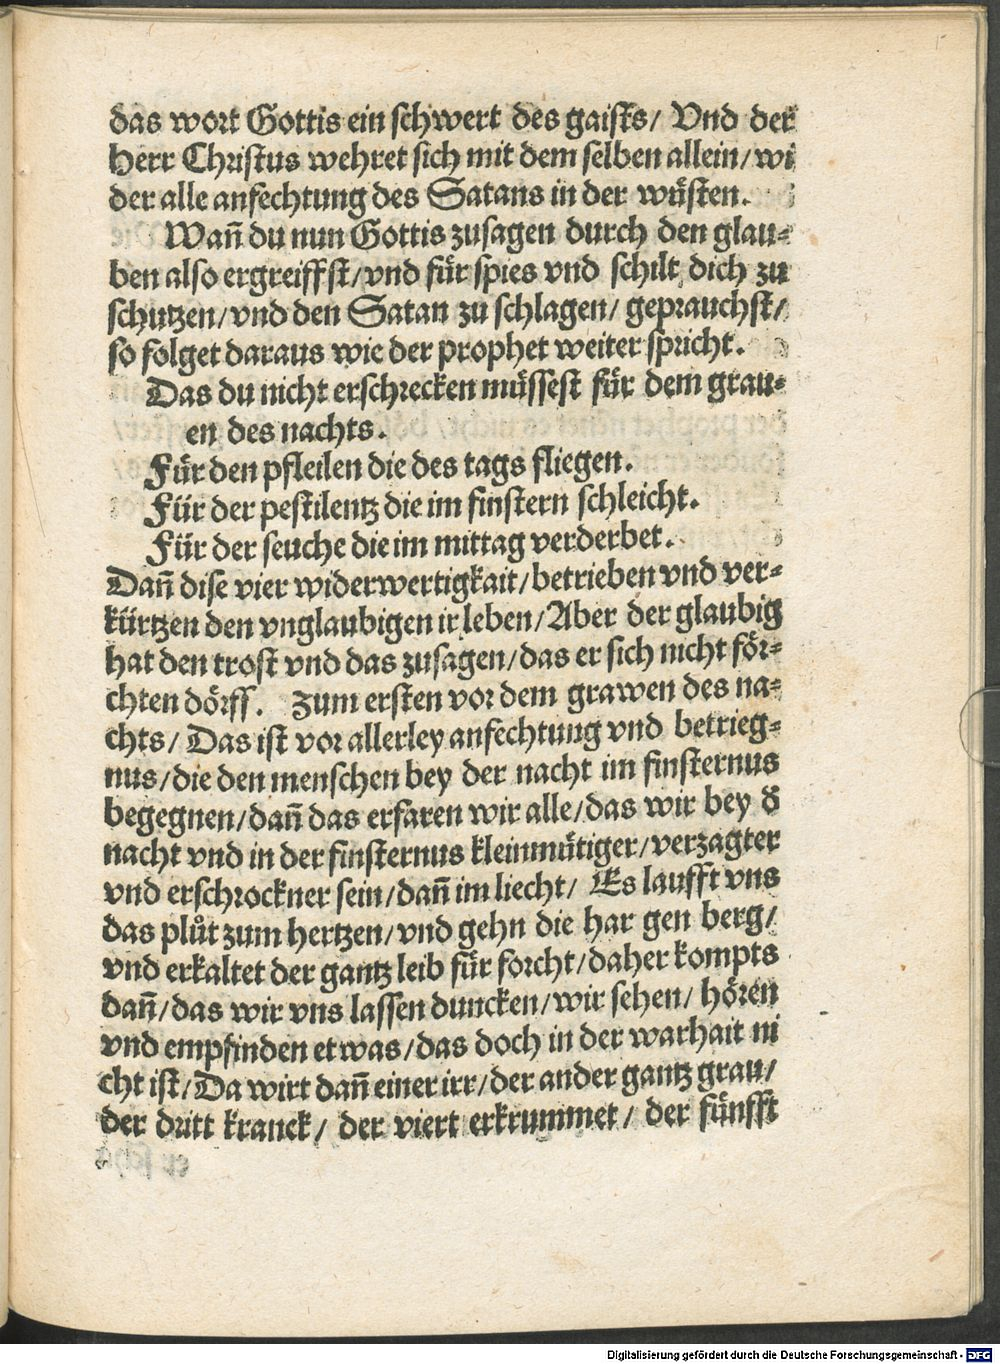 das wort Gottis ein schwert des gaists/ Vnd der
Herr Christus wehret sich mit dem selben allein/ wi
der alle anfechtung des Satans in der wüsten.
Wañ du nun Gottis zusagen durch den glau-
ben also ergreiffst/ vnd für spies vnd schilt dich zu
schutzen/ vnd den Satan zu schlagen/ geprauchst/
so folget daraus wie der prophet weiter spricht.
Das du nicht erschrecken müssest für dem grau-
en des nachts.
Für den pfleilen die des tags fliegen.
Für der pestilentz die im finstern schleicht.
Für der seuche die im mittag verderbet.
Dañ dise vier widerwertigkait/ betrieben vnd ver-
kürtzen den vnglaubigen ir leben/ Aber der glaubig
hat den trost vnd das zusagen/ das er sich nicht för-
chten dörff. Zum ersten vor dem grawen des na-
chts/ Das ist vor allerley anfechtung vnd betrieg-
nus/ die den menschen bey der nacht im finsternus
begegnen/ dañ das erfaren wir alle/ das wir bey d̕
nacht vnd in der finsternus kleinmütiger/ verzagter
vnd erschrockner sein/ dañ im liecht/ Es laufft vns
das plůt zum hertzen/ vnd gehn die har gen berg/
vnd erkaltet der gantz leib für forcht/ daher kompts
dañ/ das wir vns lassen duncken/ wir sehen/ hören
vnd empfinden etwas/ das doch in der warhait ni
cht ist/ Da wirt dañ einer irr/ der ander gantz grau/
der dritt kranck/ der viert erkrummet/ der fünfft
Digitalisierung gefördert durch die Deutsche Forschungsgemeinschaft - DFG